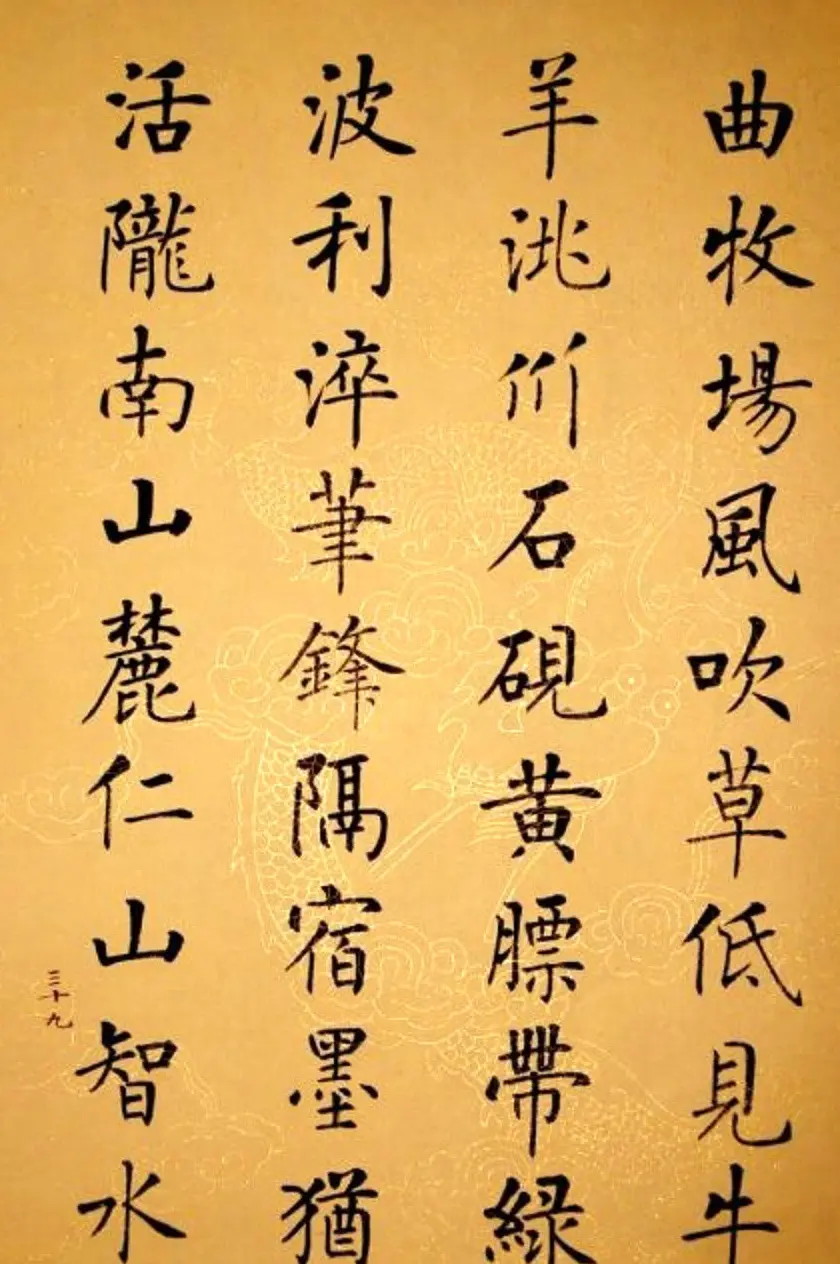 曲牧場風吹草低見牛
羊洮州石硯黃膘帶緑
波利淬筆鋒隔宿墨猶
活隴南山麓仁山智水
三十九